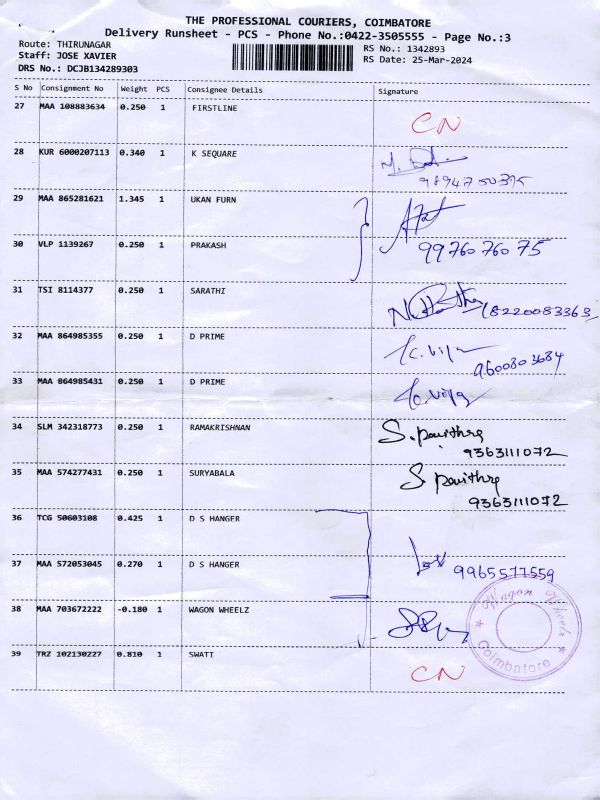 THE PROFESSIONAL COURIERS, COIMBATORE
Delivery Runsheet - PCS - Phone No.:0422-3505555 - Page No.:3
Route: THIRUNAGAR RS No.: 1342893
Staff: JOSE XAVIER RS Date: 25-Mar-2024
DRS No.: DCJB134289303
S No Consignment No Weight PCS Consignee Details Signature
27 MAA 108883634 0.250 1 FIRSTLINE
CN
28 KUR 6000207113 0.340 1 K SEQUARE
9894750375
29 MAA 865281621 1.345 1 UKAN FURN
30 VLP 1139267 0.250 1 PRAKASH 9976076075
31 TSI 8114377 0.250 1 SARATHI
8220083363
32 MAA 864985355 0.250 1 D PRIME
9600803684
33 MAA 864985431 0.250 1 D PRIME
34 SLM 342318773 0.250 1 RAMAKRISHNAN S. Pavithra
9363111072
35 MAA 574277431 0.250 1 SURYABALA S Pavithra
9363111072
36 TCG 50603108 0.425 1 D S HANGER
37 MAA 572053045 0.270 1 D S HANGER 9965577559
38 MAA 703672222 -0.180 1 WAGON WHEELZ
Wagon Wheels
Coimbatore
39 TRZ 102130227 0.810 1 SWATI
CN